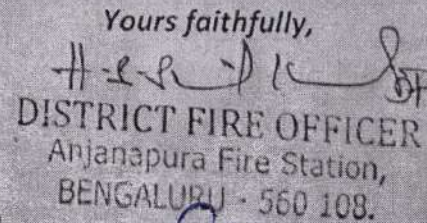 Yours faithfully,
DISTRICT FIRE OFFICER
Anjanapura Fire Station,
BENGALURU - 560 108.